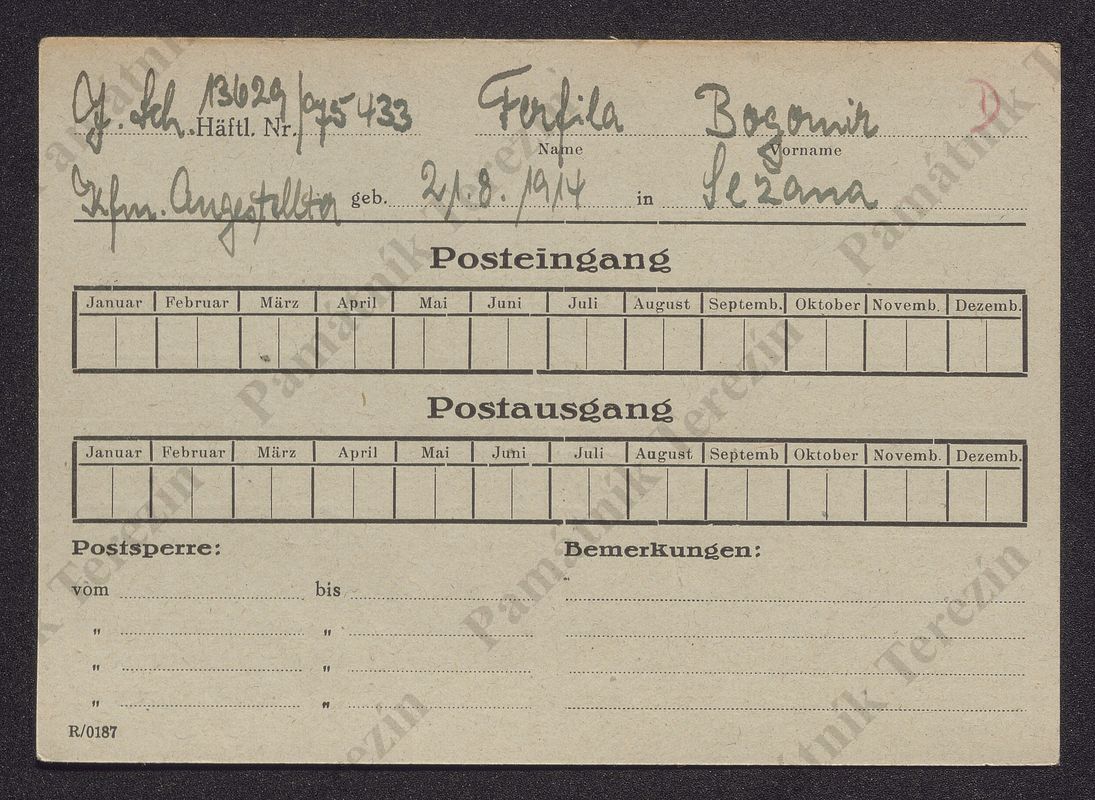 J. Sch. 13629/75433 Häftl. Nr. Ferfila Bogomir D
Name Vorname
Kfm. Angestellter geb. 21.8.1914 in Sežana
Posteingang
Januar Februar März April Mai Juni Juli August Septemb. Oktober Novemb. Dezemb.
Postausgang
Januar Februar März April Mai Juni Juli August Septemb Oktober Novemb. Dezemb.
Postsperre: Bemerkungen:
vom bis
" "
" "
" "
R/0187
Památník Terezín